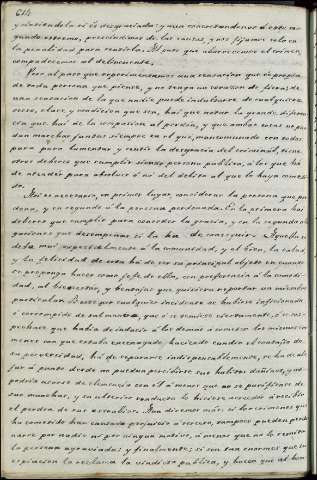 614
y haciéndola si es desgraciada: y aun concretandonos á este segundo
extremo, prescindimos de las causas, y nos fijamos solo en
la penalidad para sentirla. Al paso que aborrecemos el crimen,
compadecemos al delincuente.
Pero al paso que experimentamos una sensacion que es propia
de toda persona que piense, y no tenga un corazon de fieras: de
una sensacion de la que nadie puede indultarse de cualquier
sexo, clase, y condicion que sea, hai que notar la grande diferencia
que hai de la compasion al perdon, y que ambas cosas no puedan
marchar juntas siempre en el que, mancomunado con todos
para para lamentar y sentir la desgracia del criminal, tiene
otros deberes que cumplir siendo persona publica, á los que ha
de atender para absolver ó no del delito al que lo haya cometido.
Asi es necesario, en primer lugar, considerar la persona que perdona,
y en segundo á la persona perdonada. En la primera hai
deberes que cumplir para conceder la gracia, y en la segunda
que si ha de conseguir. Aquella se
debe mui especialmente á la comunidad, y el bien, la salud
y la felicidad de esta há de ser su principal objeto en cuanto
se proponga hacer como jefe de ella, con preferencia á la comodidad,
al bienestar, y ventajas que quisiera reportar un miembro
particular. Si este por cualquier incidente se hubiese inficionado
ó corrompido de tal manera, que ó se temiese ciertamente, ó se sospechase
que habia de inducir á los demas á cometer los mismos crimenes
con que estaba encenagado, haciendo cundir el contajio de
su perversidad, ha de separarse indispensablemente, se ha de alejar
á punto donde no puedan percibirse sus halitos dañinos, y no
podria usarse de clemencia con él á menor que no se purificase de
sus manchas, y su ulterior conducta lo hiciese acreedor á recibir
el perdon de sus estravios. Aun diremos más: si los crimenes que
ha cometido han causado perjuicio á tercero, tampoco pueden perdonarse
por nadie ni por ningun motivo, á menos que no lo remita
la persona agraviada: y finalmente; si son tan enormes que su
expiacion la reclama la vindicta publica, y hacen que del